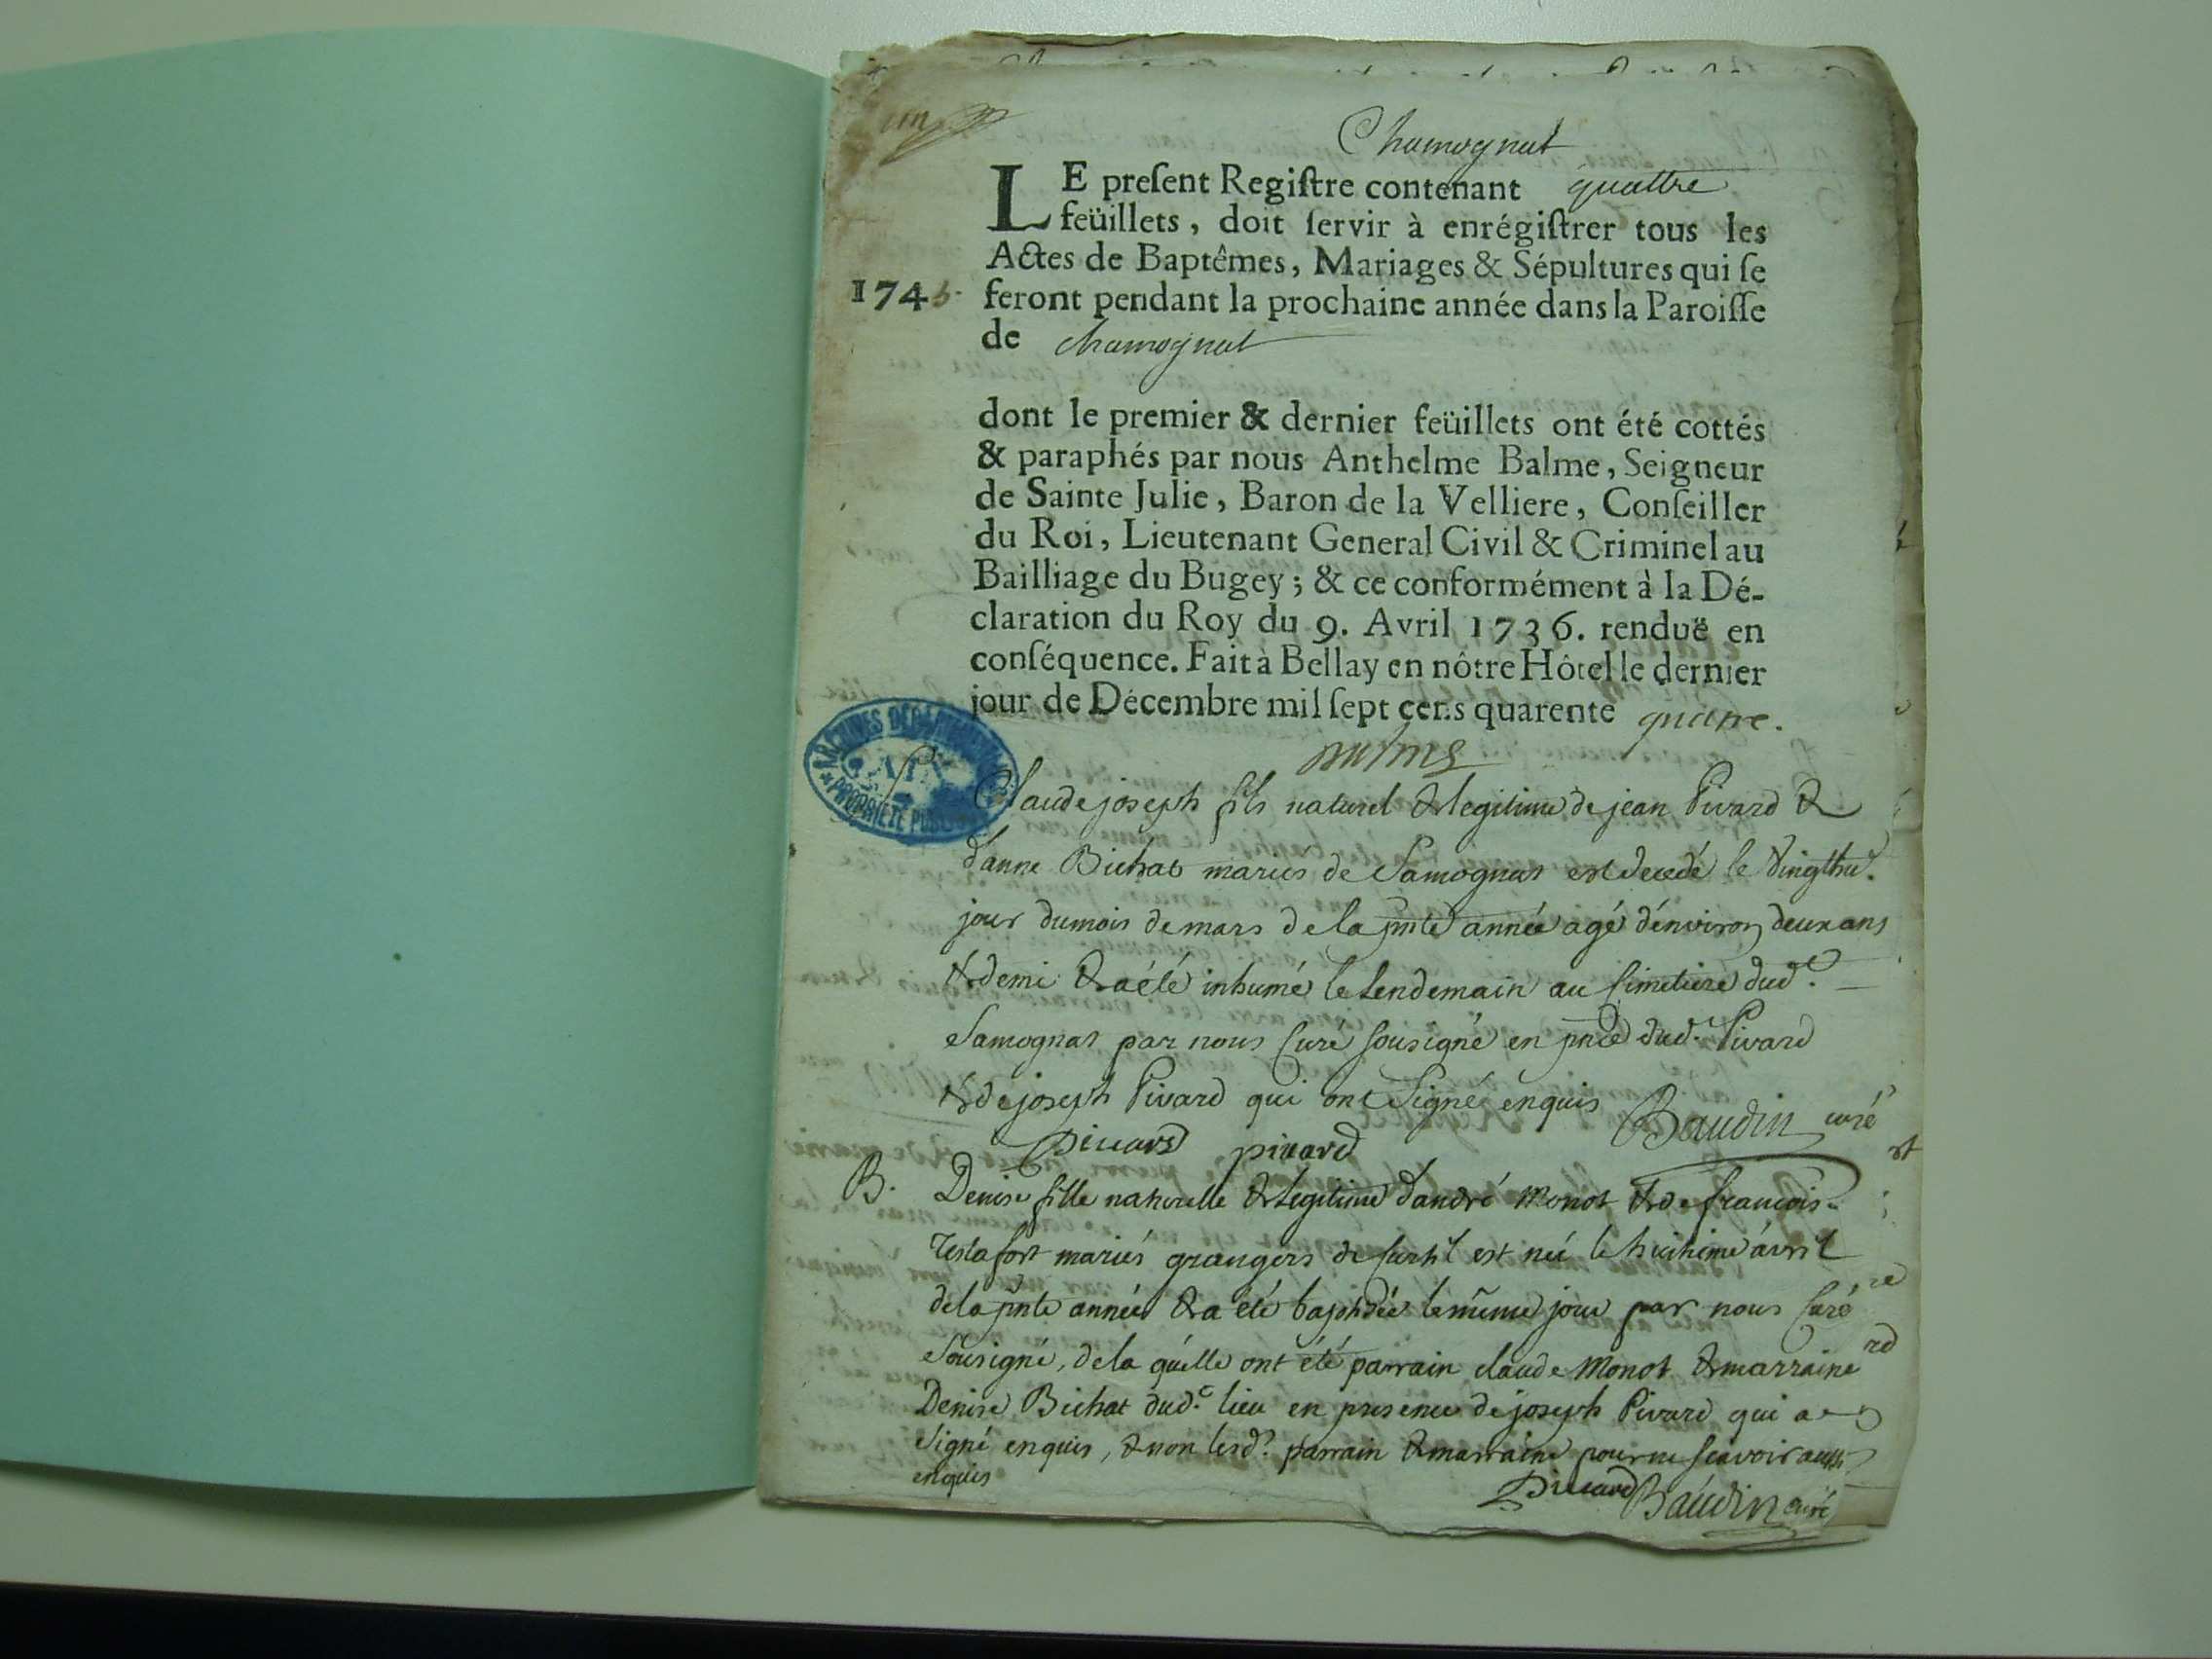 un
Chamognat
LE preſent Regiſtre contenant quattre
feüillets, doit ſervir à enrégiſtrer tous les
Actes de Baptêmes, Mariages & Sépultures qui ſe
1745. feront pendant la prochaine année dans la Paroiſſe
de chamognat
dont le premier & dernier feüillets ont été cottés
& paraphés par nous Anthelme Balme, Seigneur
de Sainte Julie, Baron de la Velliere, Conſeiller
du Roi, Lieutenant General Civil & Criminel au
Bailliage du Bugey; & ce conformément à la Dé-
claration du Roy du 9. Avril 1736. renduë en
conſéquence. Fait à Bellay en nôtre Hôtel le dernier
jour de Décembre mil ſept cens quarente quatre.
Balme
ARCHIVES DÉPARTEMENTALES
AIN
PROPRIÉTÉ PUBLIQUE
Claude joseph fils naturel & legitime de jean Pivard &
d'anne Bichat mariés de Samognat est decedé le vingthu.
jour du mois de mars de la pnte année agé d'environ deux ans
& demi & a été inhumé le lendemain au Cimetiere dud.
Samognat par nous Curé sousigné en pnce dud. Pivard
& de joseph Pivard qui ont signé enquis Baudin curé
Pivard pivard
B. Denise fille naturelle & legitime d'andré Monot & de françoise
Testafort mariés grangers de est née le huitième avril
de la pnte année & a été baptisée le même jour par nous Curé
sousigné, de la quelle ont été parrain claude Monot & marraine
Denise Bichat dud. lieu en presence de joseph Pivard qui a
signé enquis, & non lesd. parrain & marraine pour ne sçavoir aussi
enquis
Pivard Baudin curé